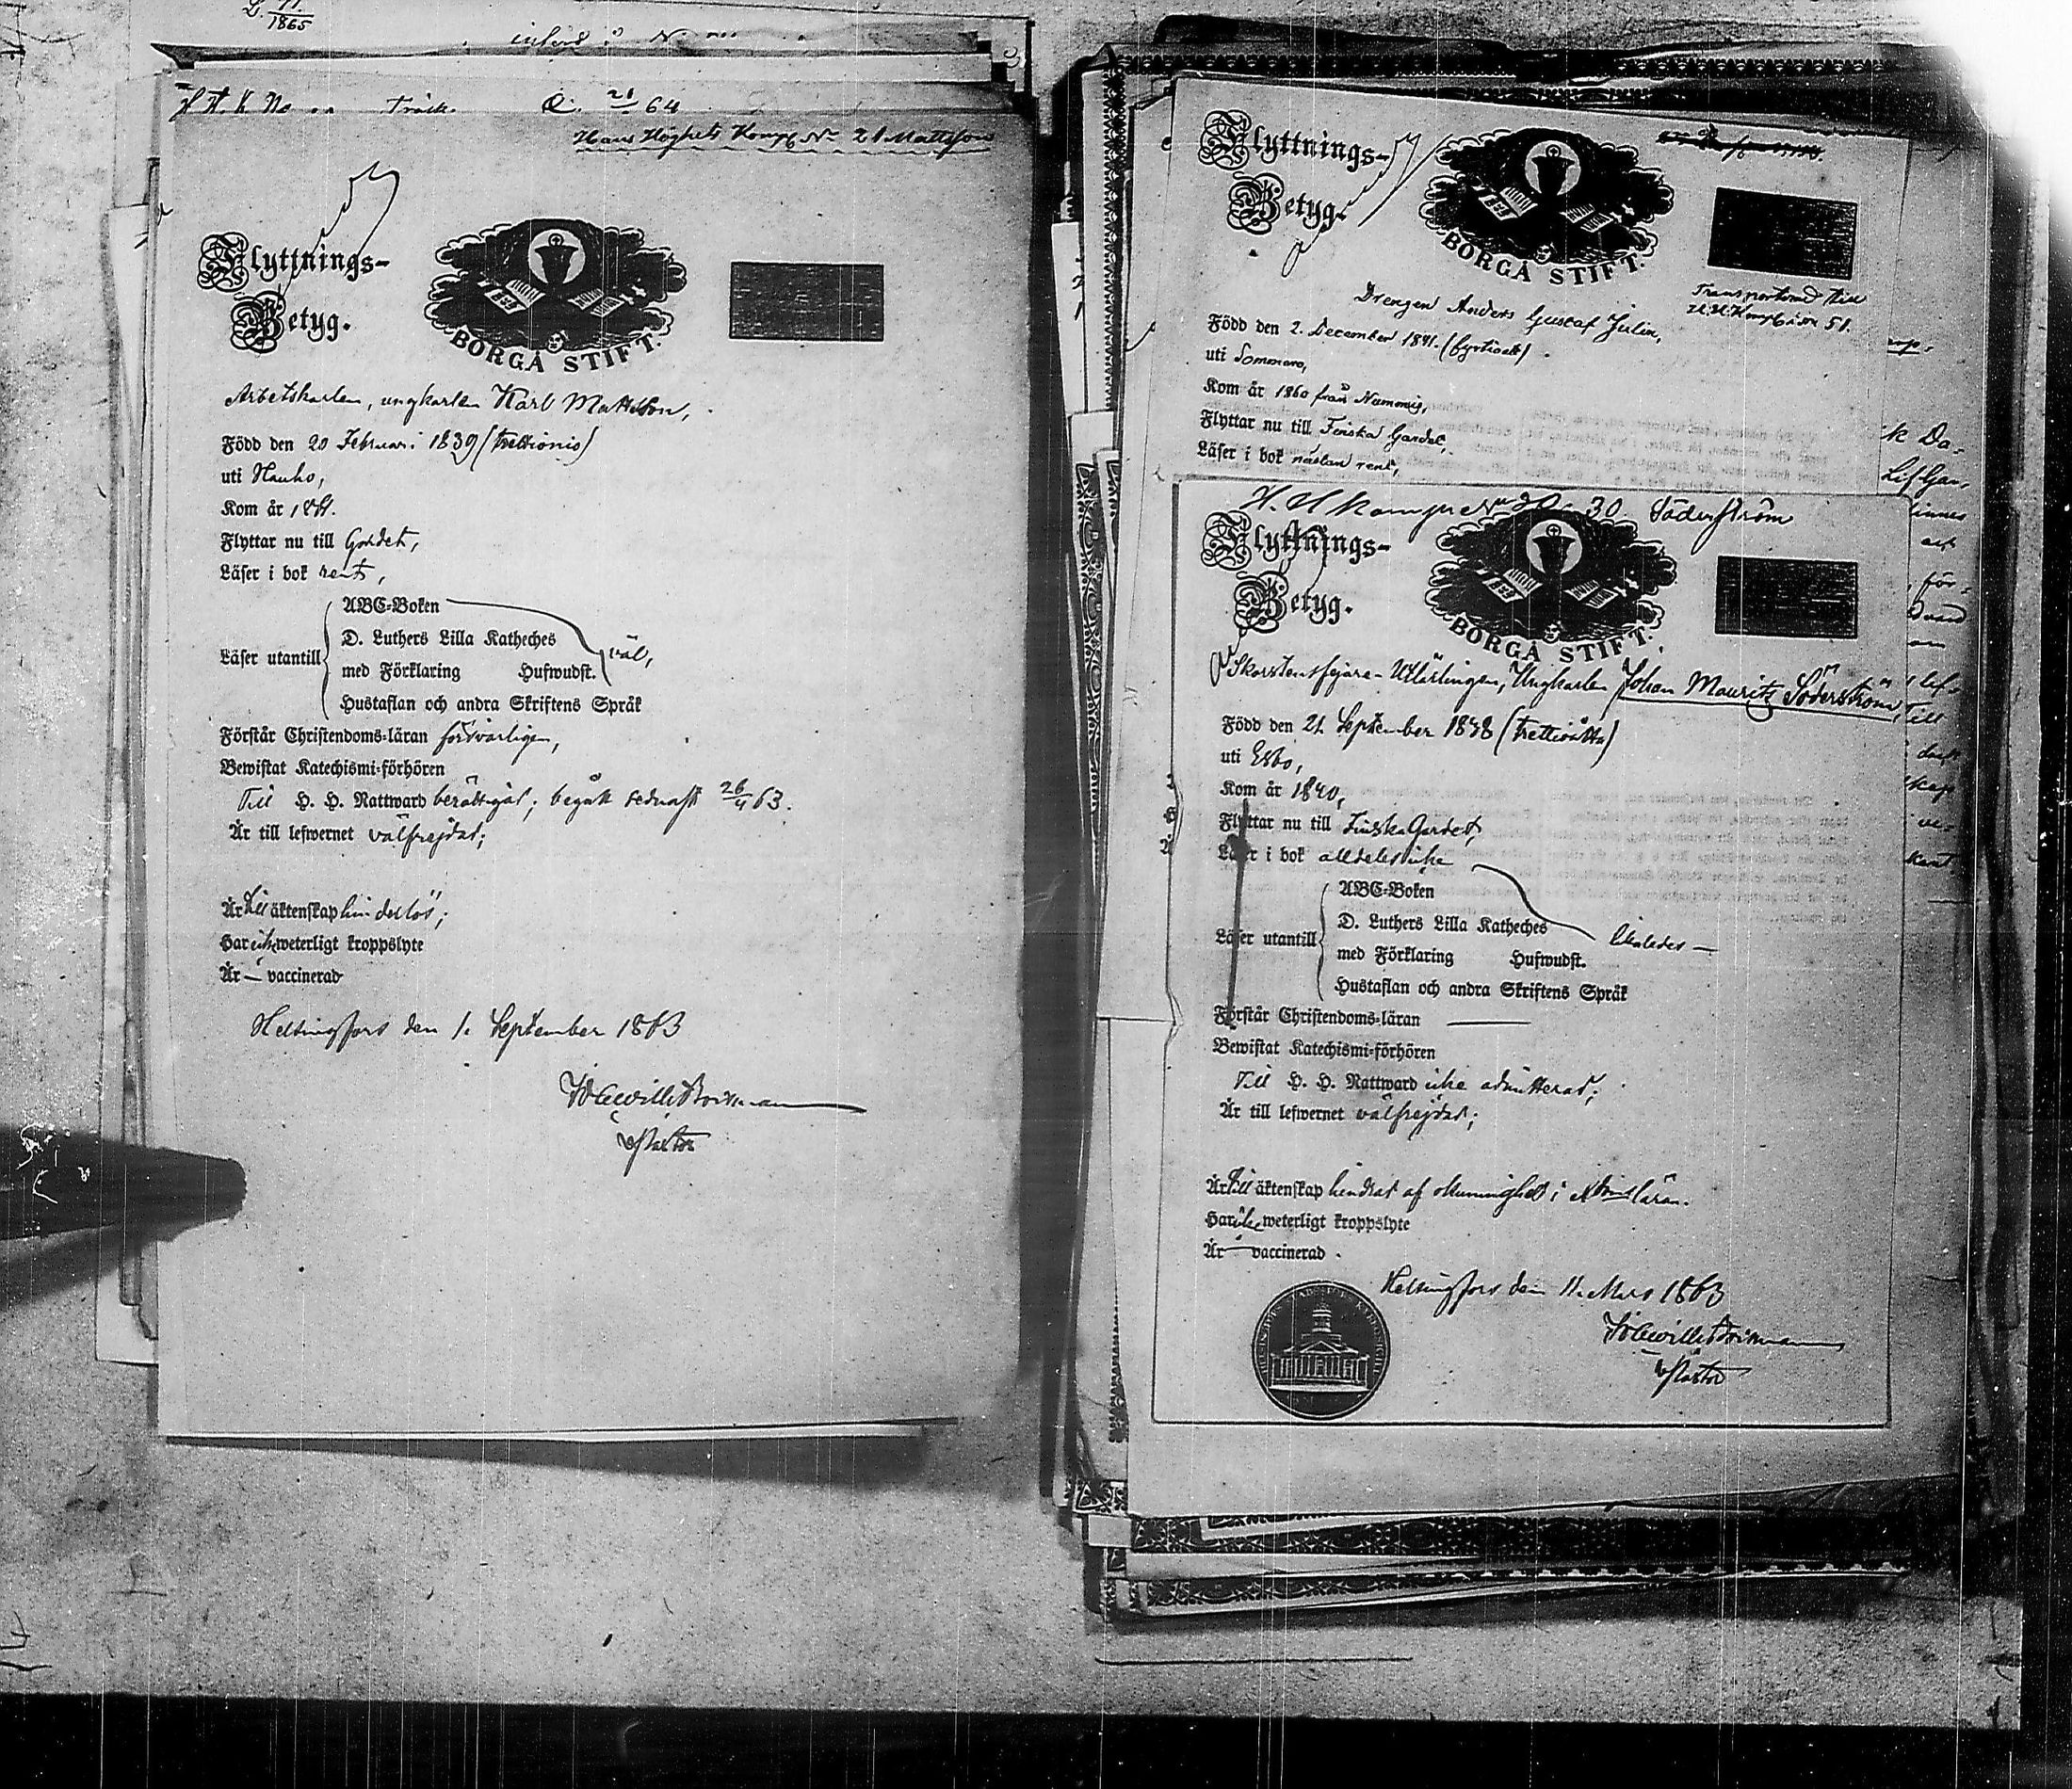 1865
H. K. No
64
Hans Höghets Komp. No 21 Mattsson
Flyttnings-
Betyg.
BORGÅ STIFT.
Arbetskarlen, ungkarlen Karl Mattsson,
Född den 20 Februari 1839 (trettionio)
uti Hauho,
Kom år
Flyttar nu till Gardet,
Läser i bok rent,
ABC-Boken
D. Luthers Lilla Katheches
Läser utantill med Förklaring Hufwudst. väl,
Hustaflan och andra Skriftens Språk
Förstår Christendoms-läran försvarligen,
Bewistat Katechismi-förhören
Till H. H. Nattward berättigad; begått sednast 26/4 63.
Är till lefwernet välfrejdad;
Är till äktenskap hinderlös;
Har icke weterligt kroppslyte
Är — vaccinerad
Helsingfors den 1. September 1863
v Pastor
Flyttnings-
Betyg.
BORGÅ STIFT.
Transporterad till
51.
Drengen Anders Gustaf Julin,
Född den 2. December 1841. (fyrtioett)
uti Sommaro,
Kom år 1860 från Nummis,
Flyttar nu till Finska Gardet,
Läser i bok nästan rent,
H. H. Komp. No 30 Söderström
Flyttnings-
Betyg.
BORGÅ STIFT.
Skorstensfejare-Utlärlingen, Ungkarlen Johan Maurits Söderström,
Född den 21 September 1838 (trettioåtta)
uti Esbo,
Kom år 1840,
Flyttar nu till Finska Gardet,
Läser i bok alldeles icke
ABC-Boken
D. Luthers Lilla Katheches
Läser utantill med Förklaring Hufwudst. likaledes —
Hustaflan och andra Skriftens Språk
Förstår Christendoms-läran —
Bewistat Katechismi-förhören
Till H. H. Nattward icke admitterad;
Är till lefwernet välfrejdad;
Är till äktenskap hindrad af okunnighet i
Har icke weterligt kroppslyte
Är — vaccinerad.
Helsingfors den 11. Mars 1863
v Pastor